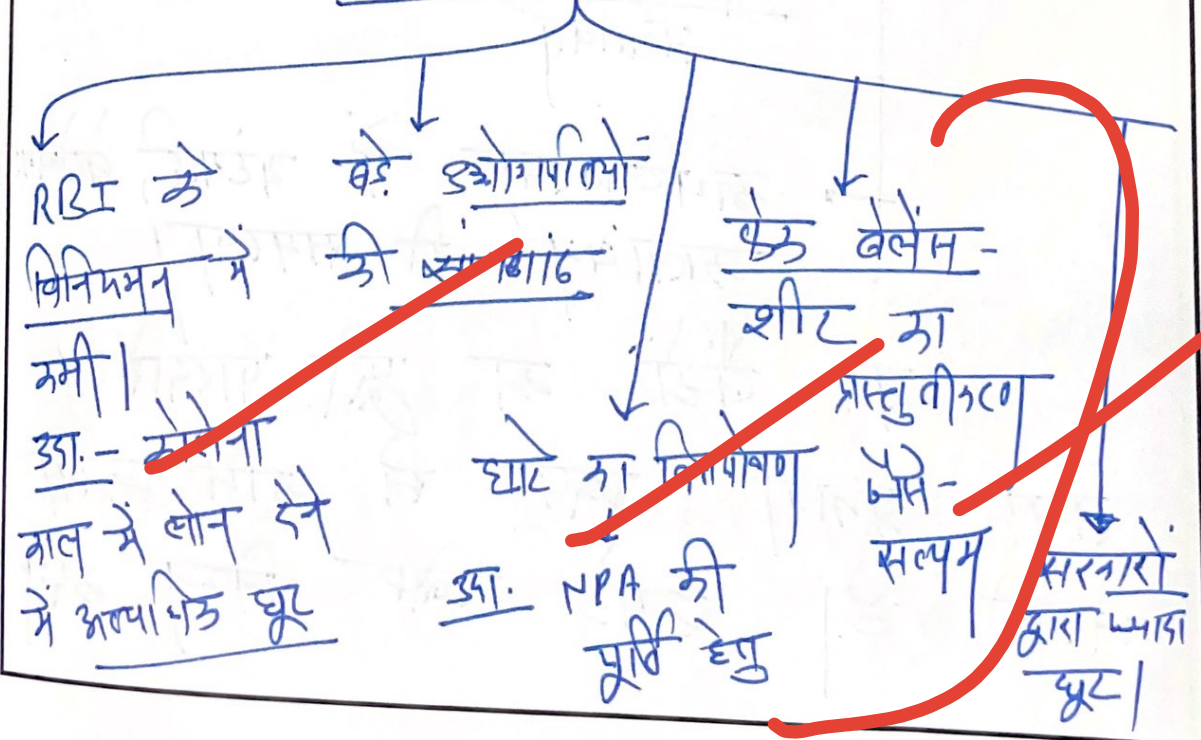 RBI के
विनियमन में
कमी।
उदा.- कोरोना
काल में लोन देने
में अत्यधिक छूट
बड़े उद्योगपतियों
की सांठगांठ
घाटे का वित्तपोषण
उदा. NPA की
पूर्ति हेतु
फेक बेलेंस-
शीट का
प्रस्तुतीकरण
जैसे-
सत्यम
सरकारों
द्वारा ज्यादा
छूट।